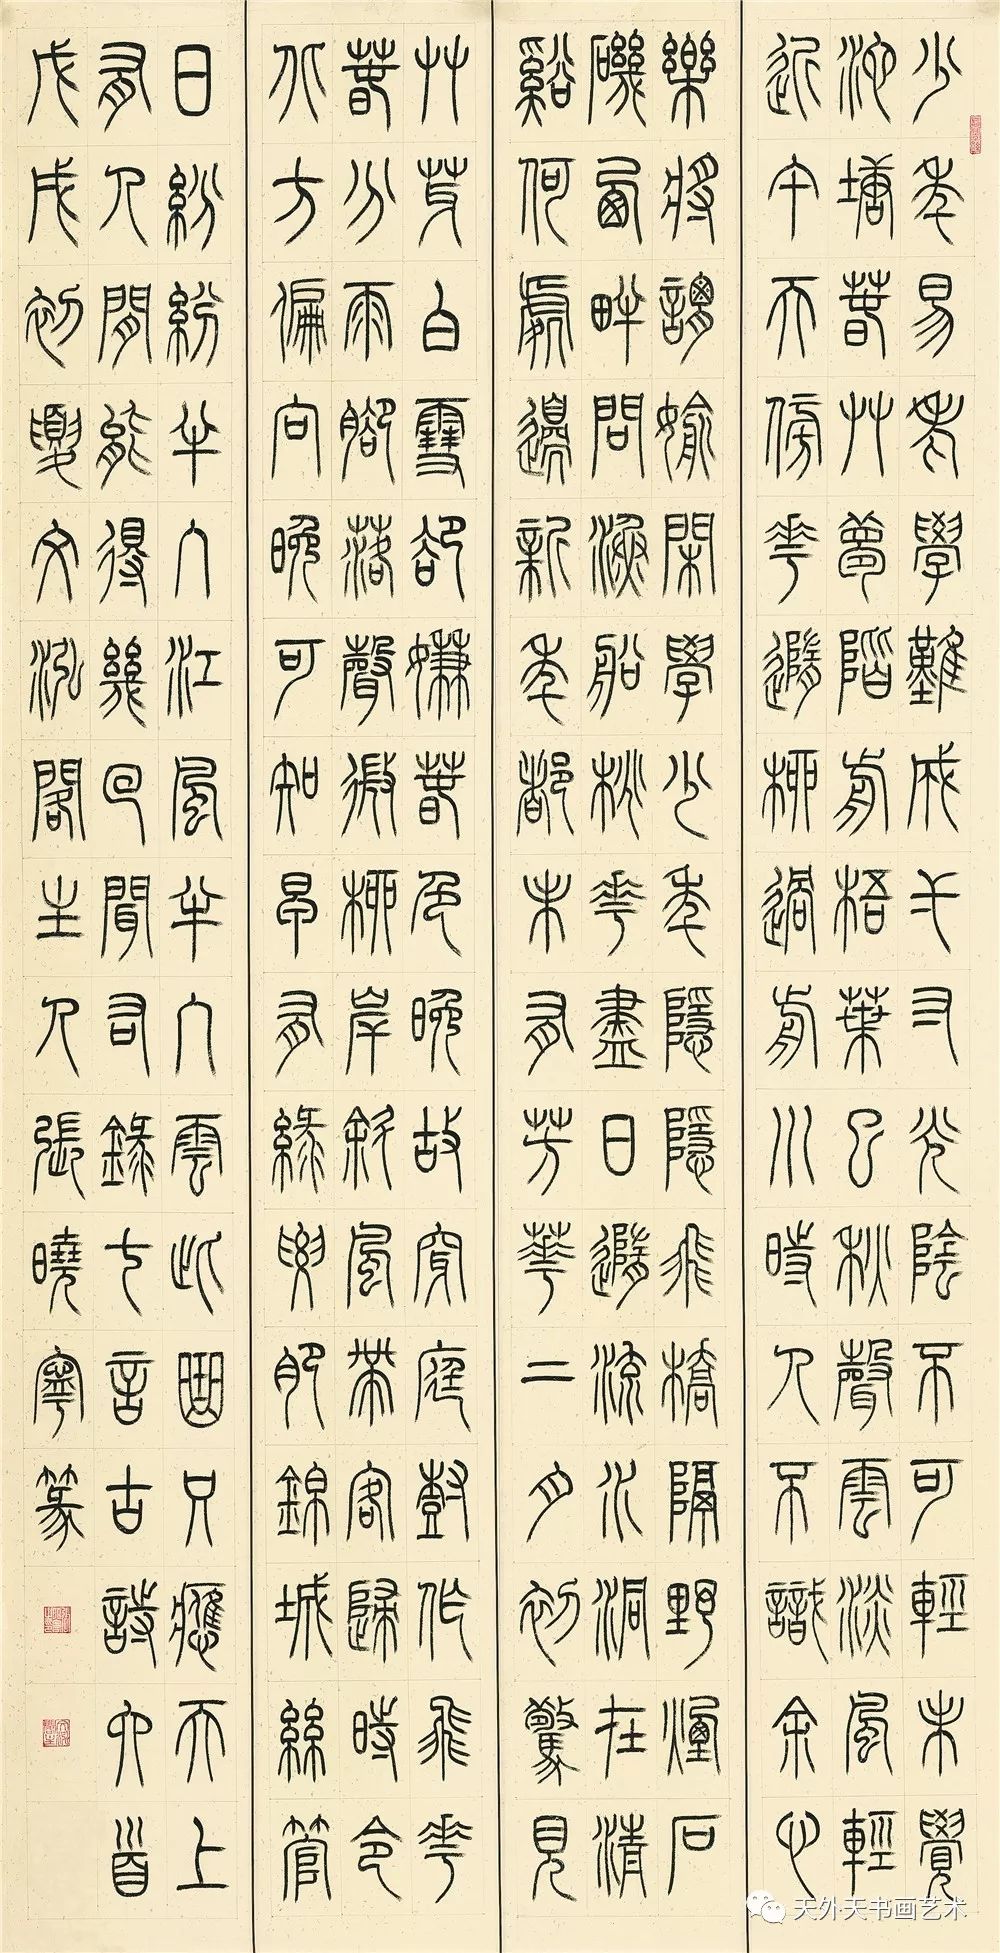 少年易老學難成弌寸光陰不可輕未覺
池塘春艸夢階前梧葉已秋聲雲淡風輕
近午天傍花隨柳過前川時人不識余心
樂將謂媮閑學少年隱隱飛橋隔野煙石
磯西畔問漁船桃花盡日隨流水洞在清
谿何處邊新年都未有芳華二月初驚見
艸芽白雪卻嫌春色晚故穿庭樹作飛花
春分雨腳落聲微柳岸斜風帶客歸時令
北方偏向晚可知早有綠要肥錦城絲管
日紛紛半入江風半入雲此曲只應天上
有人間能得幾回聞右錄七言古詩六首
戊戌初夏文泓閣主人張曉寧篆
天外天书画艺术